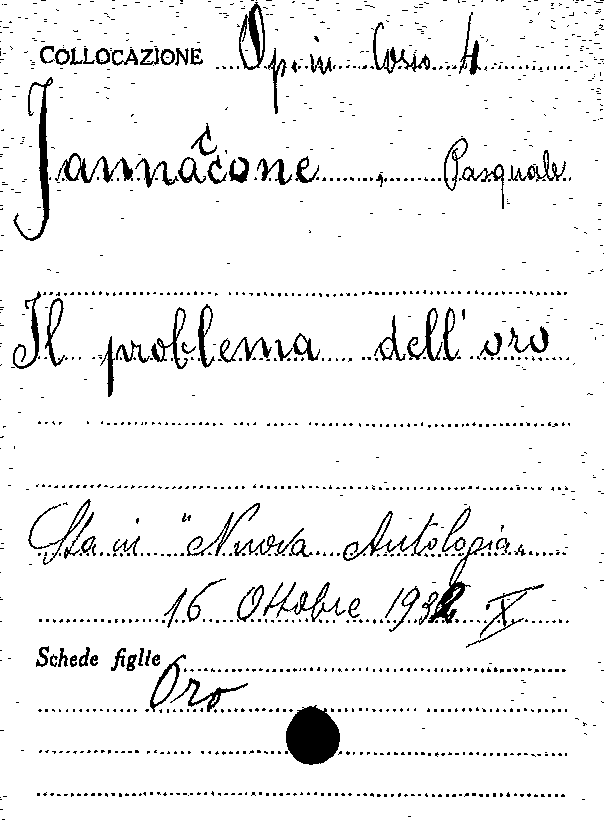 COLLOCAZIONE Op. in Corso 4
Jannaccone, Pasquale
Il problema dell'oro
Sta in "Nuova Antologia"
16 Ottobre 1932 X
Schede figlie
Oro